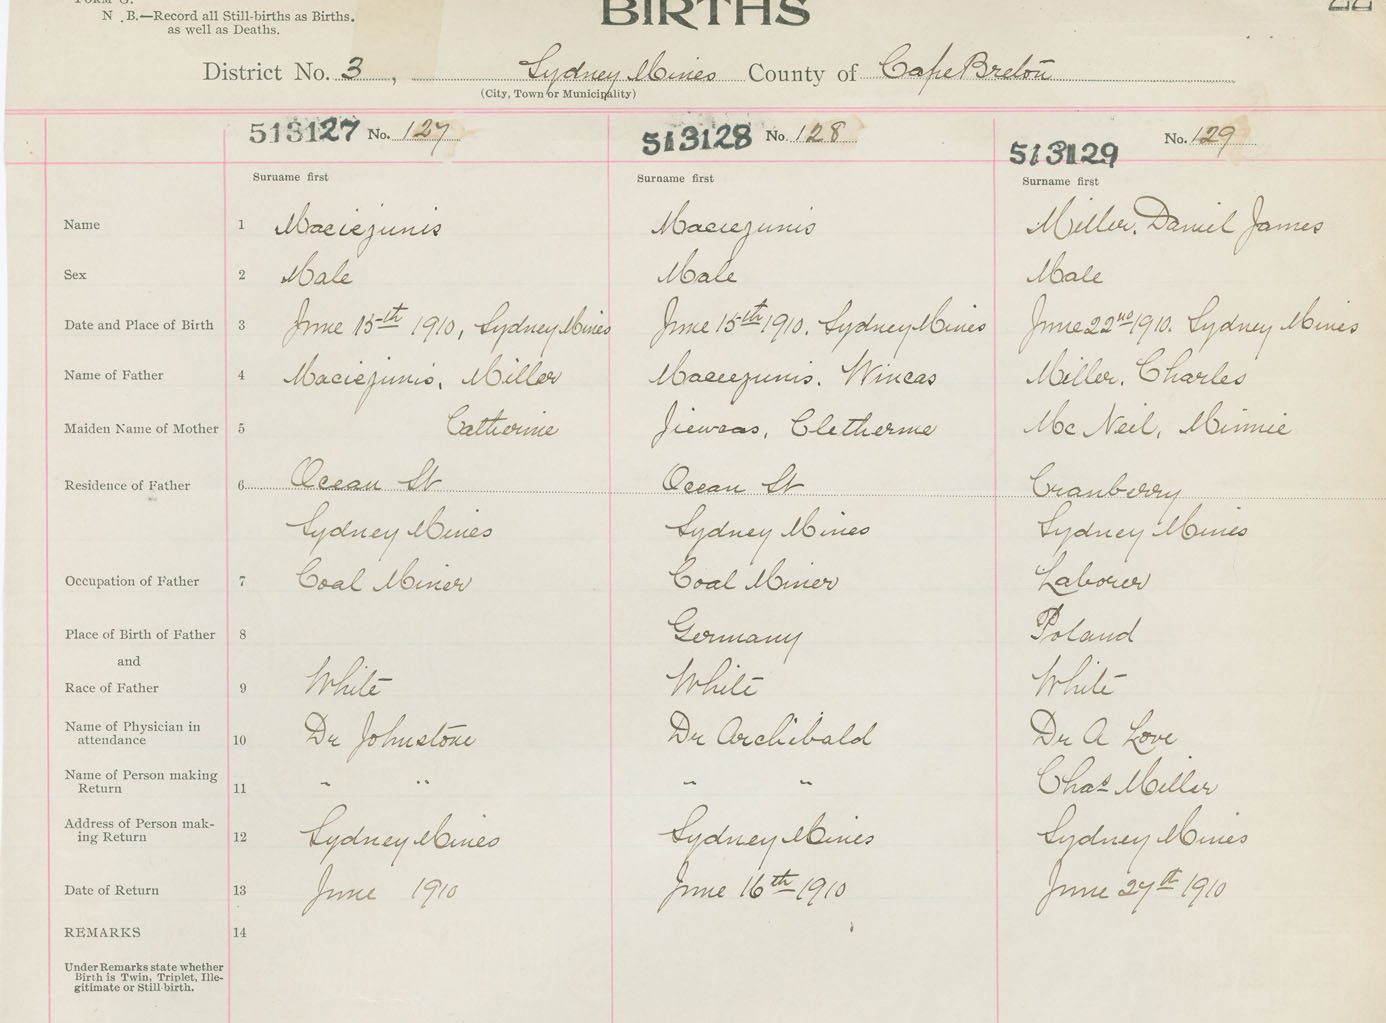 FORM G.
N.B.—Record all Still-births as Births.
as well as Deaths.
BIRTHS
District No. 3, Sydney Mines County of Cape Breton
(City, Town or Municipality)
513127 No. 127 513128 No. 128 513129 No. 129
Surname first Surname first Surname first
Name 1 Maciejunis Maciejunis Miller, Daniel James
Sex 2 Male Male Male
Date and Place of Birth 3 June 15th 1910, Sydney Mines June 15th 1910. Sydney Mines June 22nd 1910. Sydney Mines
Name of Father 4 Maciejunis, Miller Maciejunis. Wincas Miller. Charles
Maiden Name of Mother 5 Catherine Jiewras, Cletherine Mc Neil, Minnie
Residence of Father 6 Ocean St Ocean St Cranberry
Sydney Mines Sydney Mines Sydney Mines
Occupation of Father 7 Coal Miner Coal Miner Laborer
Place of Birth of Father 8 Germany Poland
and
Race of Father 9 White White White
Name of Physician in
attendance 10 Dr Johnstone Dr Archibald Dr A Love
Name of Person making
Return 11 " " " " Chas Miller
Address of Person mak-
ing Return 12 Sydney Mines Sydney Mines Sydney Mines
Date of Return 13 June 1910 June 16th 1910 June 27th 1910
REMARKS 14
Under Remarks state whether
Birth is Twin, Triplet, Ille-
gitimate or Still-birth.